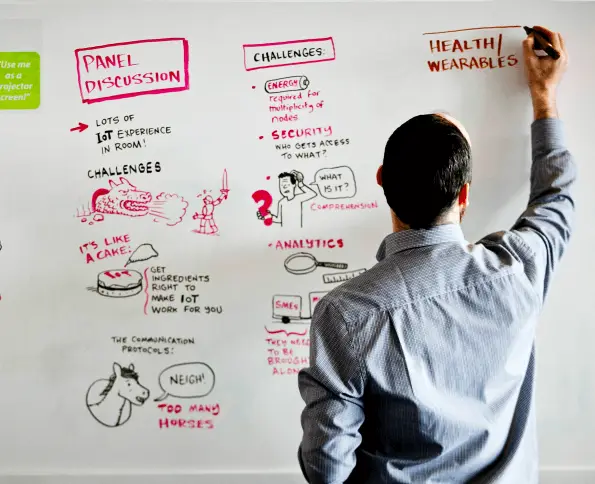 "Use me
as a
projector
screen!"
PANEL
DISCUSSION
LOTS OF
IoT EXPERIENCE
IN ROOM!
CHALLENGES
IT'S LIKE
A CAKE:
GET
INGREDIENTS
RIGHT TO
MAKE IOT
WORK FOR YOU
THE COMMUNICATION
PROTOCOLS:
NEIGH!
TOO MANY
HORSES
CHALLENGES:
• ENERGY
required for
multiplicity of
nodes
• SECURITY
WHO GETS ACCESS
TO WHAT?
?
WHAT
IS IT?
COMPREHENSION
• ANALYTICS
SMEs
THEY NEED
TO BE
BROUGH
ALON
HEALTH/
WEARABLES